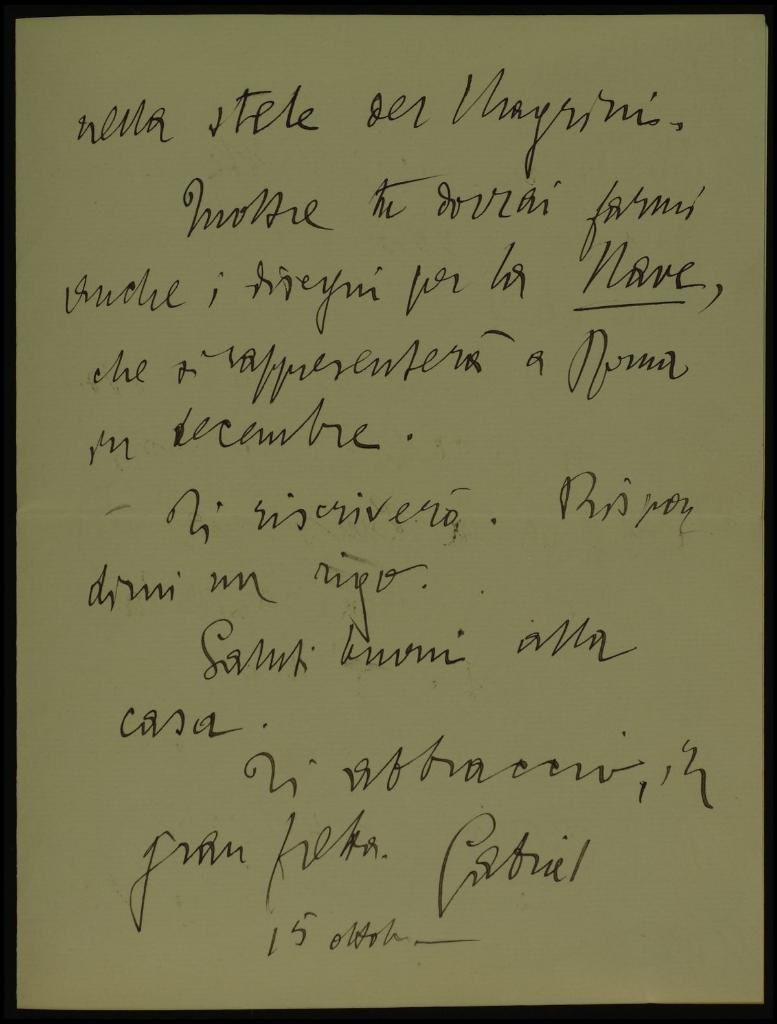 nella stele del Magrini.
Inoltre tu dovrai farmi
anche i disegni per la Nave,
che si rappresenterà a Roma
in decembre.
– Ti riscriverò. Rispon
dimi un rigo.
Saluti buoni alla
casa.
Ti abbraccio, in
gran fretta. Gabriel
15 ottob.